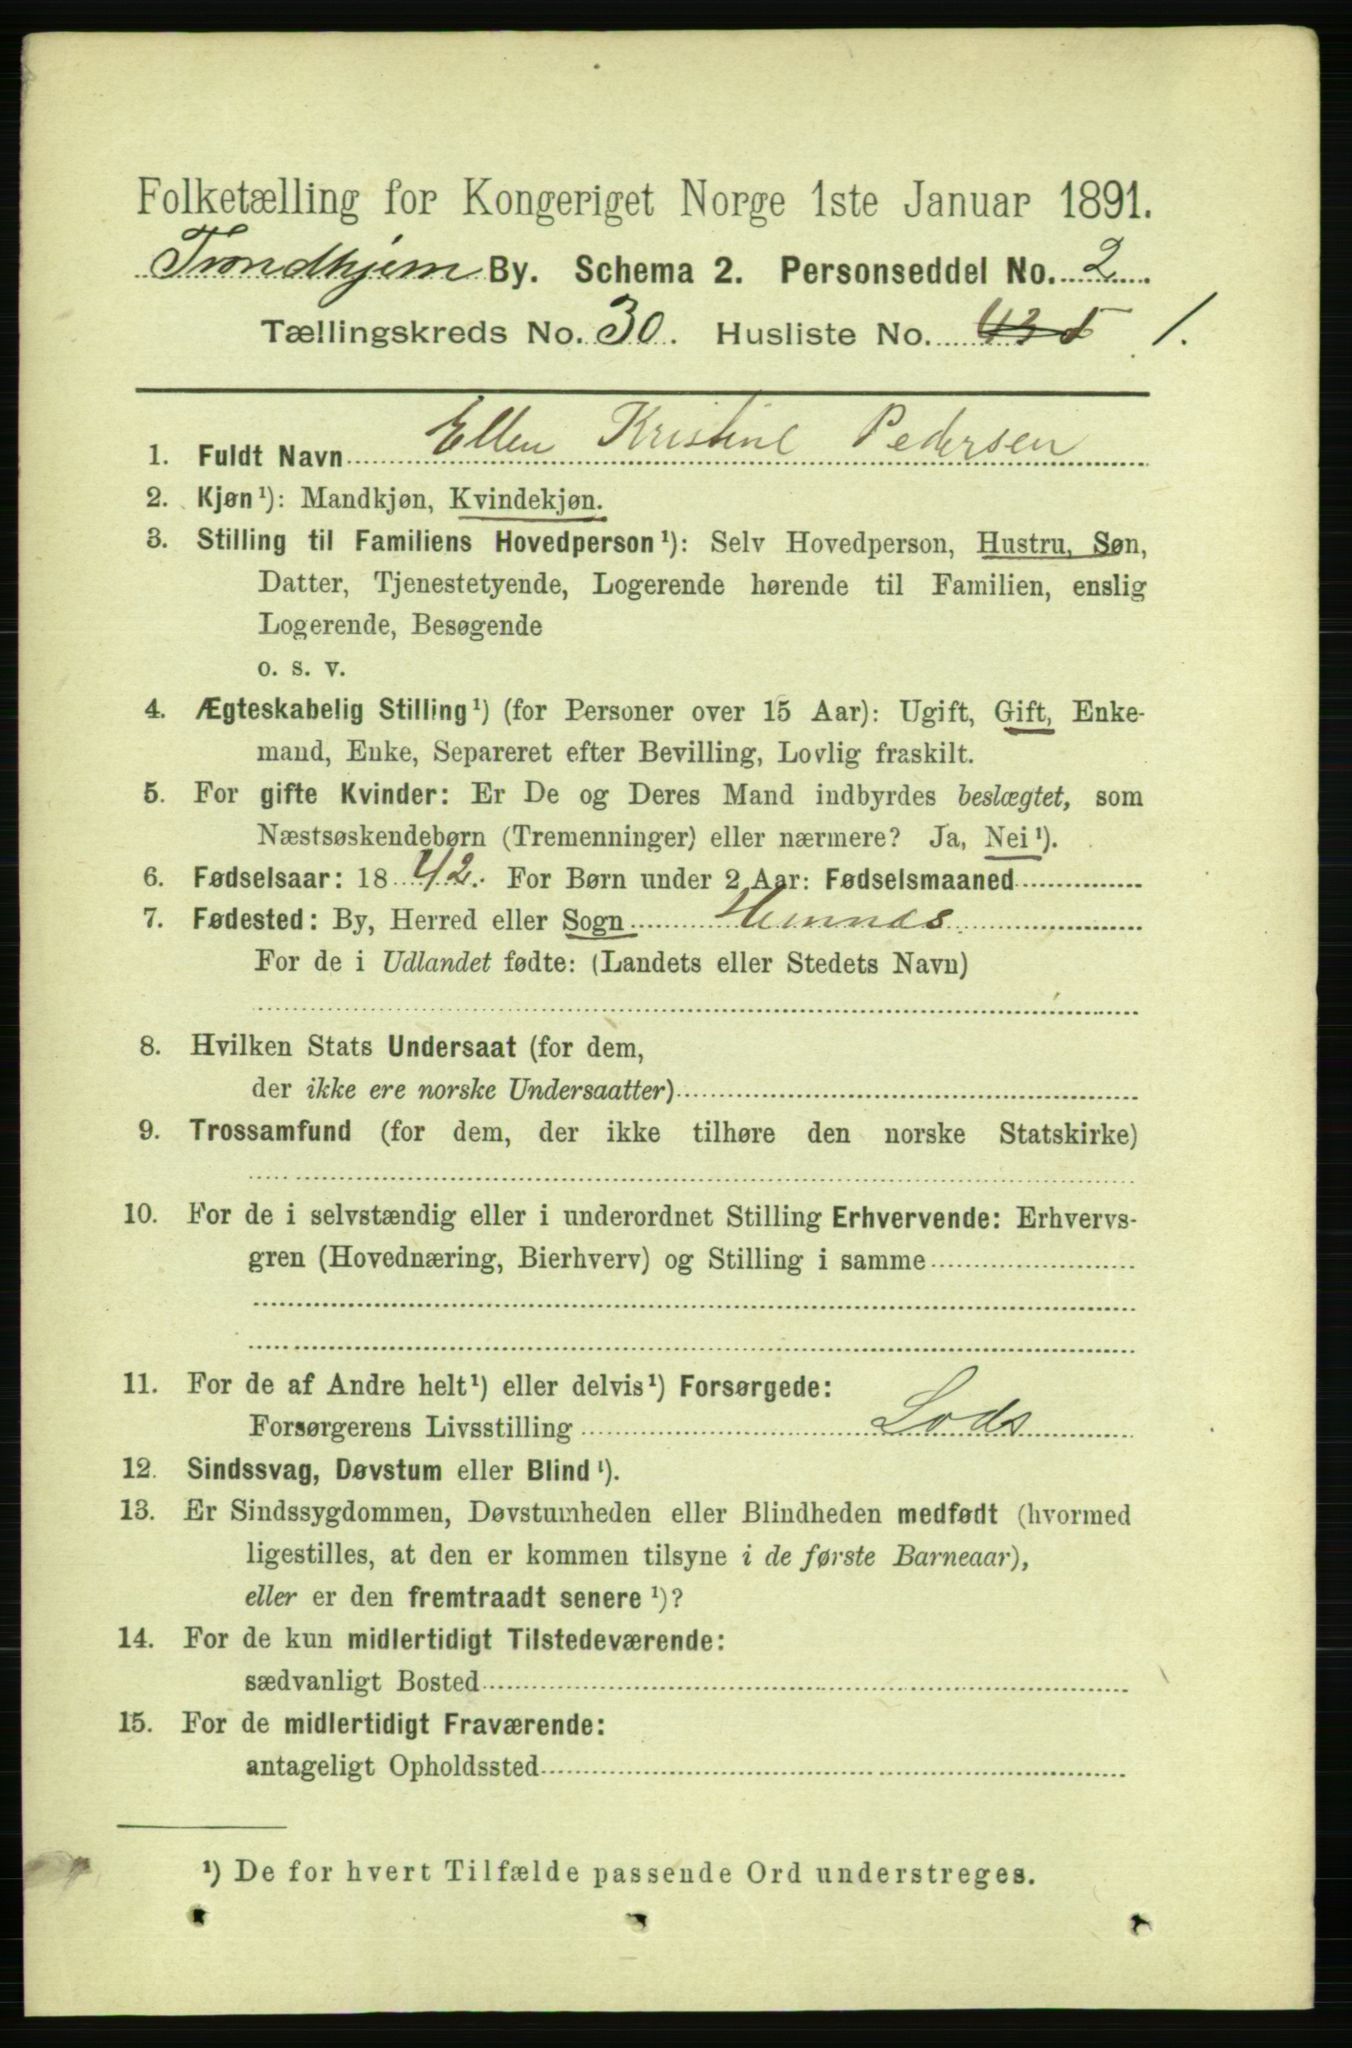 Folketælling for Kongeriget Norge 1ste Januar 1891.
Trondhjem By. Schema 2. Personseddel No. 2
Tællingskreds No. 30. Husliste No. 1.
1. Fuldt Navn Ellen Kristine Pedersen
2. Kjøn¹): Mandkjøn, Kvindekjøn.
3. Stilling til Familiens Hovedperson¹): Selv Hovedperson, Hustru, Søn,
Datter, Tjenestetyende, Logerende hørende til Familien, enslig
Logerende, Besøgende
o. s. v.
4. Ægteskabelig Stilling¹) (for Personer over 15 Aar): Ugift, Gift, Enke-
mand, Enke, Separeret efter Bevilling, Lovlig fraskilt.
5. For gifte Kvinder: Er De og Deres Mand indbyrdes beslægtet, som
Næstsøskendebørn (Tremenninger) eller nærmere? Ja, Nei¹).
6. Fødselsaar: 1842. For Børn under 2 Aar: Fødselsmaaned
7. Fødested: By, Herred eller Sogn Hemnæs
For de i Udlandet fødte: (Landets eller Stedets Navn)
8. Hvilken Stats Undersaat (for dem,
der ikke ere norske Undersaatter)
9. Trossamfund (for dem, der ikke tilhøre den norske Statskirke)
10. For de i selvstændig eller i underordnet Stilling Erhvervende: Erhvervs-
gren (Hovednæring, Bierhverv) og Stilling i samme
11. For de af Andre helt¹) eller delvis¹) Forsørgede:
Forsørgerens Livsstilling Lods
12. Sindssvag, Døvstum eller Blind¹).
13. Er Sindssygdommen, Døvstumheden eller Blindheden medfødt (hvormed
ligestilles, at den er kommen tilsyne i de første Barneaar),
eller er den fremtraadt senere¹)?
14. For de kun midlertidigt Tilstedeværende:
sædvanligt Bosted
15. For de midlertidigt Fraværende:
antageligt Opholdssted
¹) De for hvert Tilfælde passende Ord understreges.